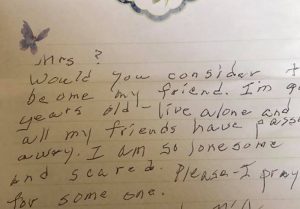 Mrs ?
Would you consider
become my friend. I'm
years old - live alone and
all my friends have
away. I am so lonesome
and scared. Please - I pray
for some one.